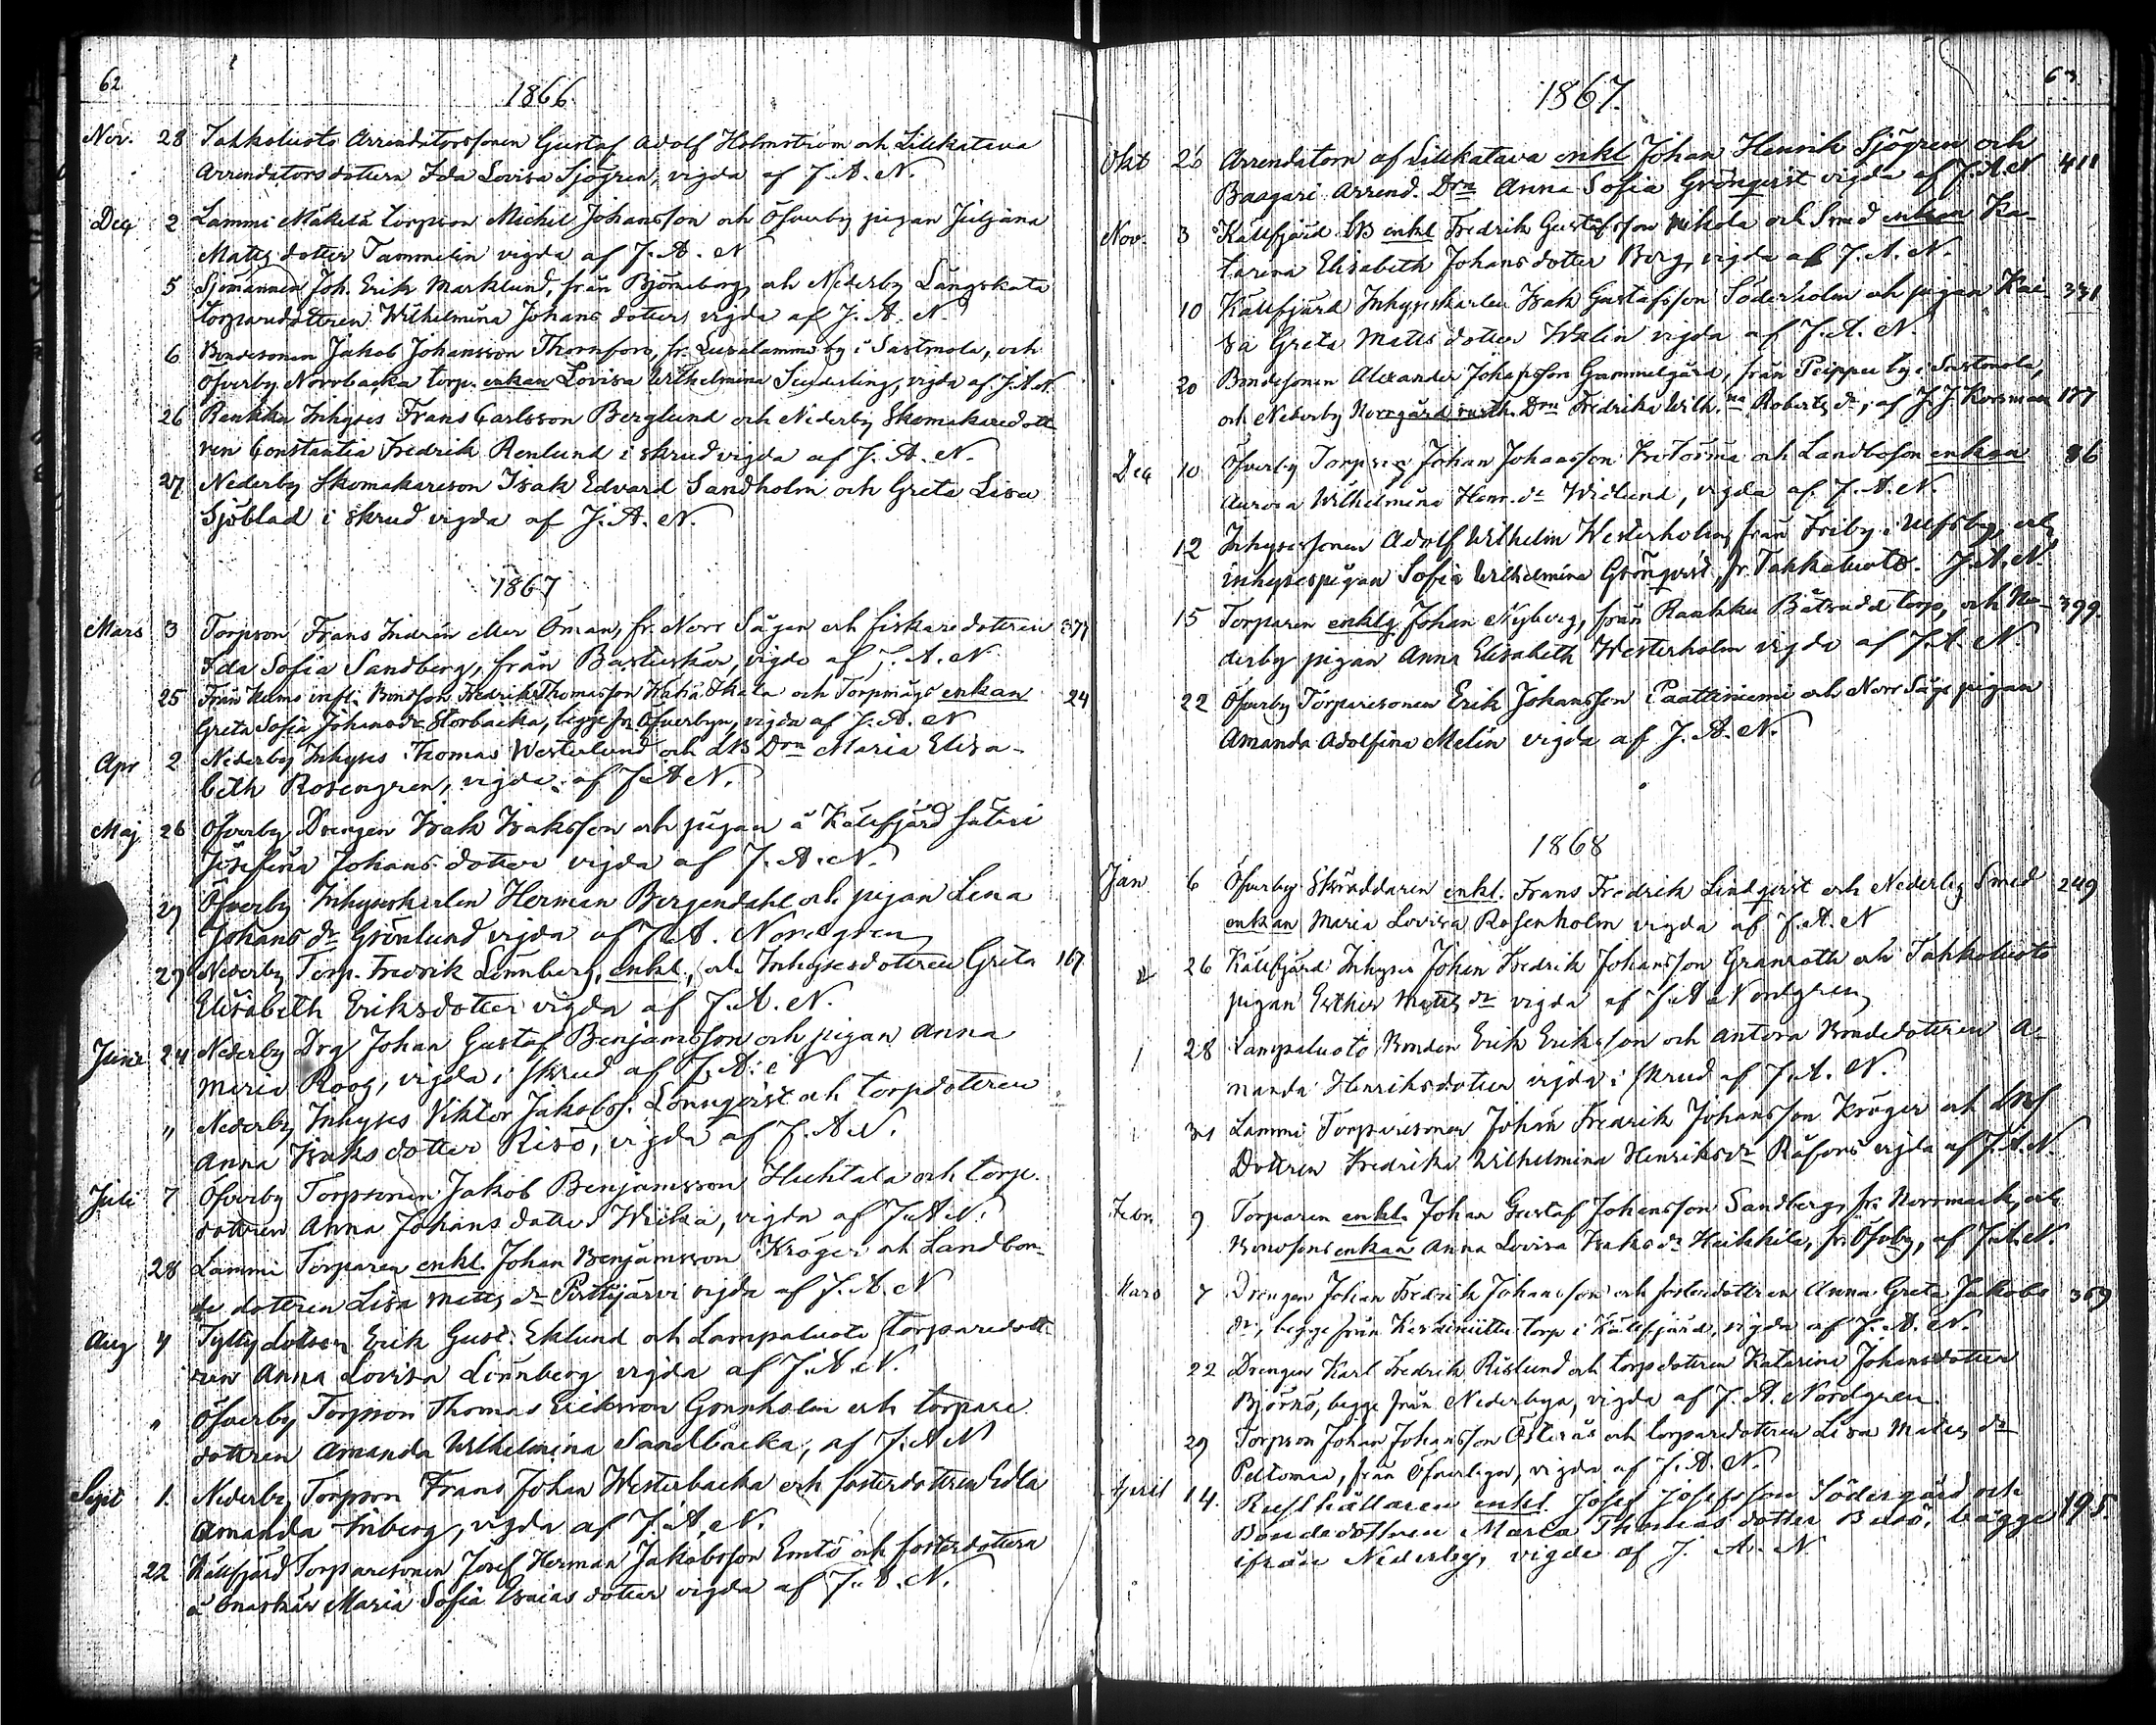 62
1866.
Nov. 28 Tahkoluoto Arrendatorssonen Gustaf Adolf Holmström och Lilikatava
Arrendatorsdottern Ida Lovisa Sjögren, vigda af J. A. N.
Dec 2 Lammi Mäkelä torpson Michel Johansson och Öfverby pigan Juljana
Matts dotter Tammelin vigda af J. A. N
5 Sjömannen Joh. Erik Marklund, från Björneborg, och Nederby Långskata
torparedottren Wilhelmina Johans dotter, vigda af J. A. N.
6 Bondesonen Jakob Johansson Thornfors, fr. by i Sastmola, och
Öfverby Norrbacka torp. enkan Lovisa Wilhelmina Sunderling, vigda af J.A.N.
26 Renkku Inhyses Frans Carlsson Berglund och Nederby Skomakaredott
ren Constantia Fredrik Renlund i skrud vigda af J. A. N.
27 Nederby Skomakareson Isak Edvard Sandholm och Greta Lisa
Sjöblad i skrud vigda af J. A. N.
1867
Mars 3 Torpson Frans Indrén eller Öman, fr. Norr Sågen och fiskaredottren 377
Ida Sofia Sandberg, från Bastuskär, vigda af J. A. N
25 Från Kumo infl. Bondson Fredrik Thomasson och Torpmågs enkan 24
Greta Sofia Johans dr Storbacka, begge fr. Öfverbyn, vigda af J. A. N
Apr 2 Nederby Inhyses Thomas Westerlund och LB Drn Maria Elisa-
beth Rosengren, vigda af J A N.
Maj 26 Öfverby Drengen Isak Isaksson och pigan å Källfjärd säteri
Josefina Johans dotter vigda af J. A. N.
29 Öfverby Inhyseskarlen Herman Bergendahl och pigan Lena
Johans dr Grönlund vigda af J. A. Nordgren
29 Nederby Torp. Fredrik Lönnberg, enkl., och Inhysesdottren Greta 167
Elisabeth Eriksdotter vigda af J. A. N.
Juni 24 Nederby Drg Johan Gustaf Benjamsson och pigan Anna
Maria Roog, vigda i skrud af J. A. N
" Nederby Inhyses Viktor Jakobss. Lönnqvist och torpdottren
Anna Isaks dotter Risö, vigda af J. A. N.
Juli 7. Öfverby Torpsonen Jakob Benjamsson Huhtala och torp.
dottren Anna Johans dotter, vigda af J. A. N.
28 Lammi Torparen enkl. Johan Benjamsson Kröger och Landbon-
de dottren Lisa Matts dr Pirttijärvi vigda af J. A. N
Aug 4 Tylly Lotsen Erik Gust. Eklund och Lampaluoto torparedott-
ren Anna Lovisa Lönnberg vigda af J. A. N.
" Öfverby Torpson Thomas Eriksson Grönholm och torpare
dottren Amanda Wilhelmina Sandbacka, af J. A. N
Sept 1. Nederby Torpson Frans Johan Westerbacka och fosterdottren Edla
Amanda Inberg, vigda af J. A. N.
22 Källfjärd Torparesonen Josef Herman Jakobsson Emtö och fosterdottern
å Enaskär Maria Sofia Esaias dotter vigda af J. A. N.
63
1867.
Okt 26 Arrendatorn af Lilikatava enkl Johan Henrik Sjögren och
Baagari Arrend. Drn Anna Sofia Grönqvist vigda af J. A. N 411
Nov. 3 Källfjärd LB enkl Fredrik Gustafsson Nikola och Smed enkan Ka-
tarina Elisabeth Johans dotter Berg, vigda af J. A. N.
10 Källfjärd Inhyseskarlen Isak Gustafsson Söderholm och pigan Kai- 331
sa Greta Matts dotter Walin vigda af J. A. N.
20 Bondesonen Alexander Johansson Gammelgård, från Peippu by i Sastmola,
och Nederby Norrgård Drn Fredrika Wilh.na Roberts dr, af J. J. Korsman 177
Dec 10 Öfverby Torpson Johan Johansson och Landboson enkan 86
Aurora Wilhelmina Henr. dr Widlund, vigda af J. A. N.
12 Inhysessonen Adolf Wilhelm Westerholm, från Friby i Ulfsby, och
inhysespigan Sofia Wilhelmina Grönqvist, fr. Tahkoluoto. J. A. N.
15 Torparen enklg Johan Nyberg, från Raahku Båtsudd torp, och Ne- 399.
derby pigan Anna Elisabeth Westerholm vigda af J. A. N.
22 Öfverby Torparesonen Erik Johansson Paattiniemi och Norr Sågs pigan
Amanda Adolfina Melin vigda af J. A. N.
1868
Jan 6 Öfverby Skräddaren enkl. Frans Fredrik Lindqvist och Nederby Smed 249
enkan Maria Lovisa Rosenholm vigda af J. A. N
26 Källfjärd Inhyses Johan Fredrik Johansson Granroth och Tahkoluoto
pigan Esther Matts dr vigda af J. A. Nordgren
28 Lampaluoto Bonden Erik Eriksson och Antora Bondedottren A-
manda Henriksdotter vigda i skrud af J. A. N.
31 Lammi Torparesonen Johan Fredrik Johansson Kröger och
Dottren Fredrika Wilhelmina Henriksdr Räfsos vigda af J. A. N.
Febr. 9 Torparen enkl. Johan Gustaf Johansson Sandberg, fr. Norrmark, och
Bondsons enkan Anna Lovisa Isaks dr Heikkilä, fr. Öfverby, af J. A. N.
Mars 7 Drengen Johan Fredrik Johansson och fosterdottren Anna Greta Jakobs 369
dr, begge från torp i Källfjärd, vigda af J. A. N.
22 Drengen Karl Fredrik Rislund och torpdottren Katarina Johansdotter
Björkö, begge från Nederbyn, vigda af J. A. Nordgren.
29 Torpson Johan Johansson Österås och torparedottren Lisa Matts dr
Peltomaa, från Öfverbyn, vigda af J. A. N.
April 14. Rusthållaren enkl. Josef Josefsson Södergård och
Bondedottren Maria Thomas dotter Busö, bägge 195.
ifrån Nederby, vigde af J. A. N